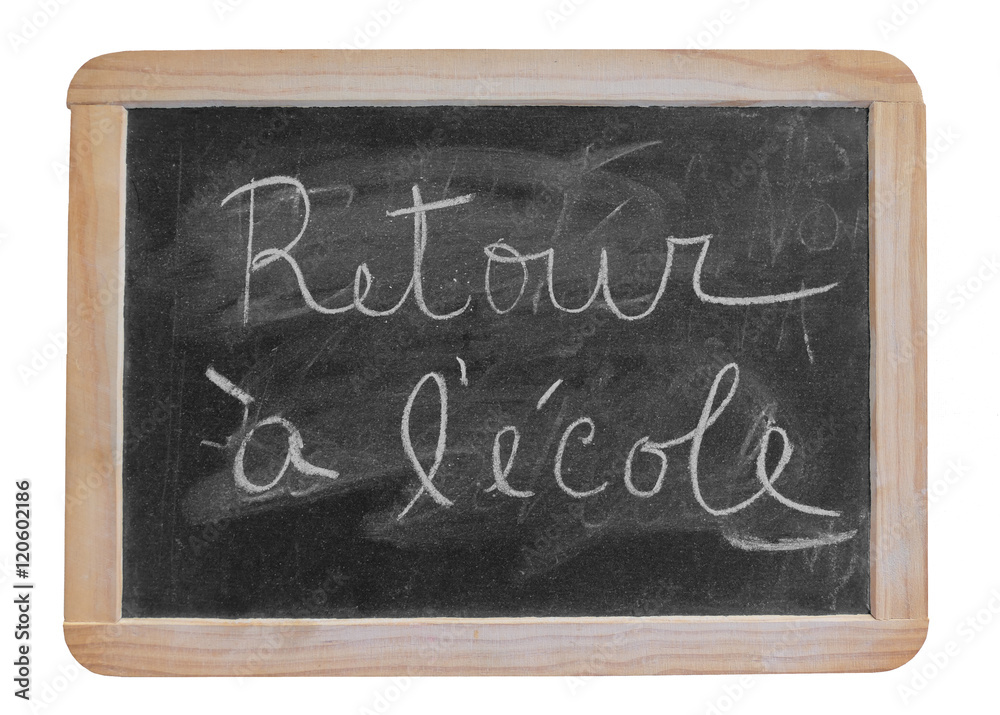 Retour
à l'école
120602186
Adobe Stock